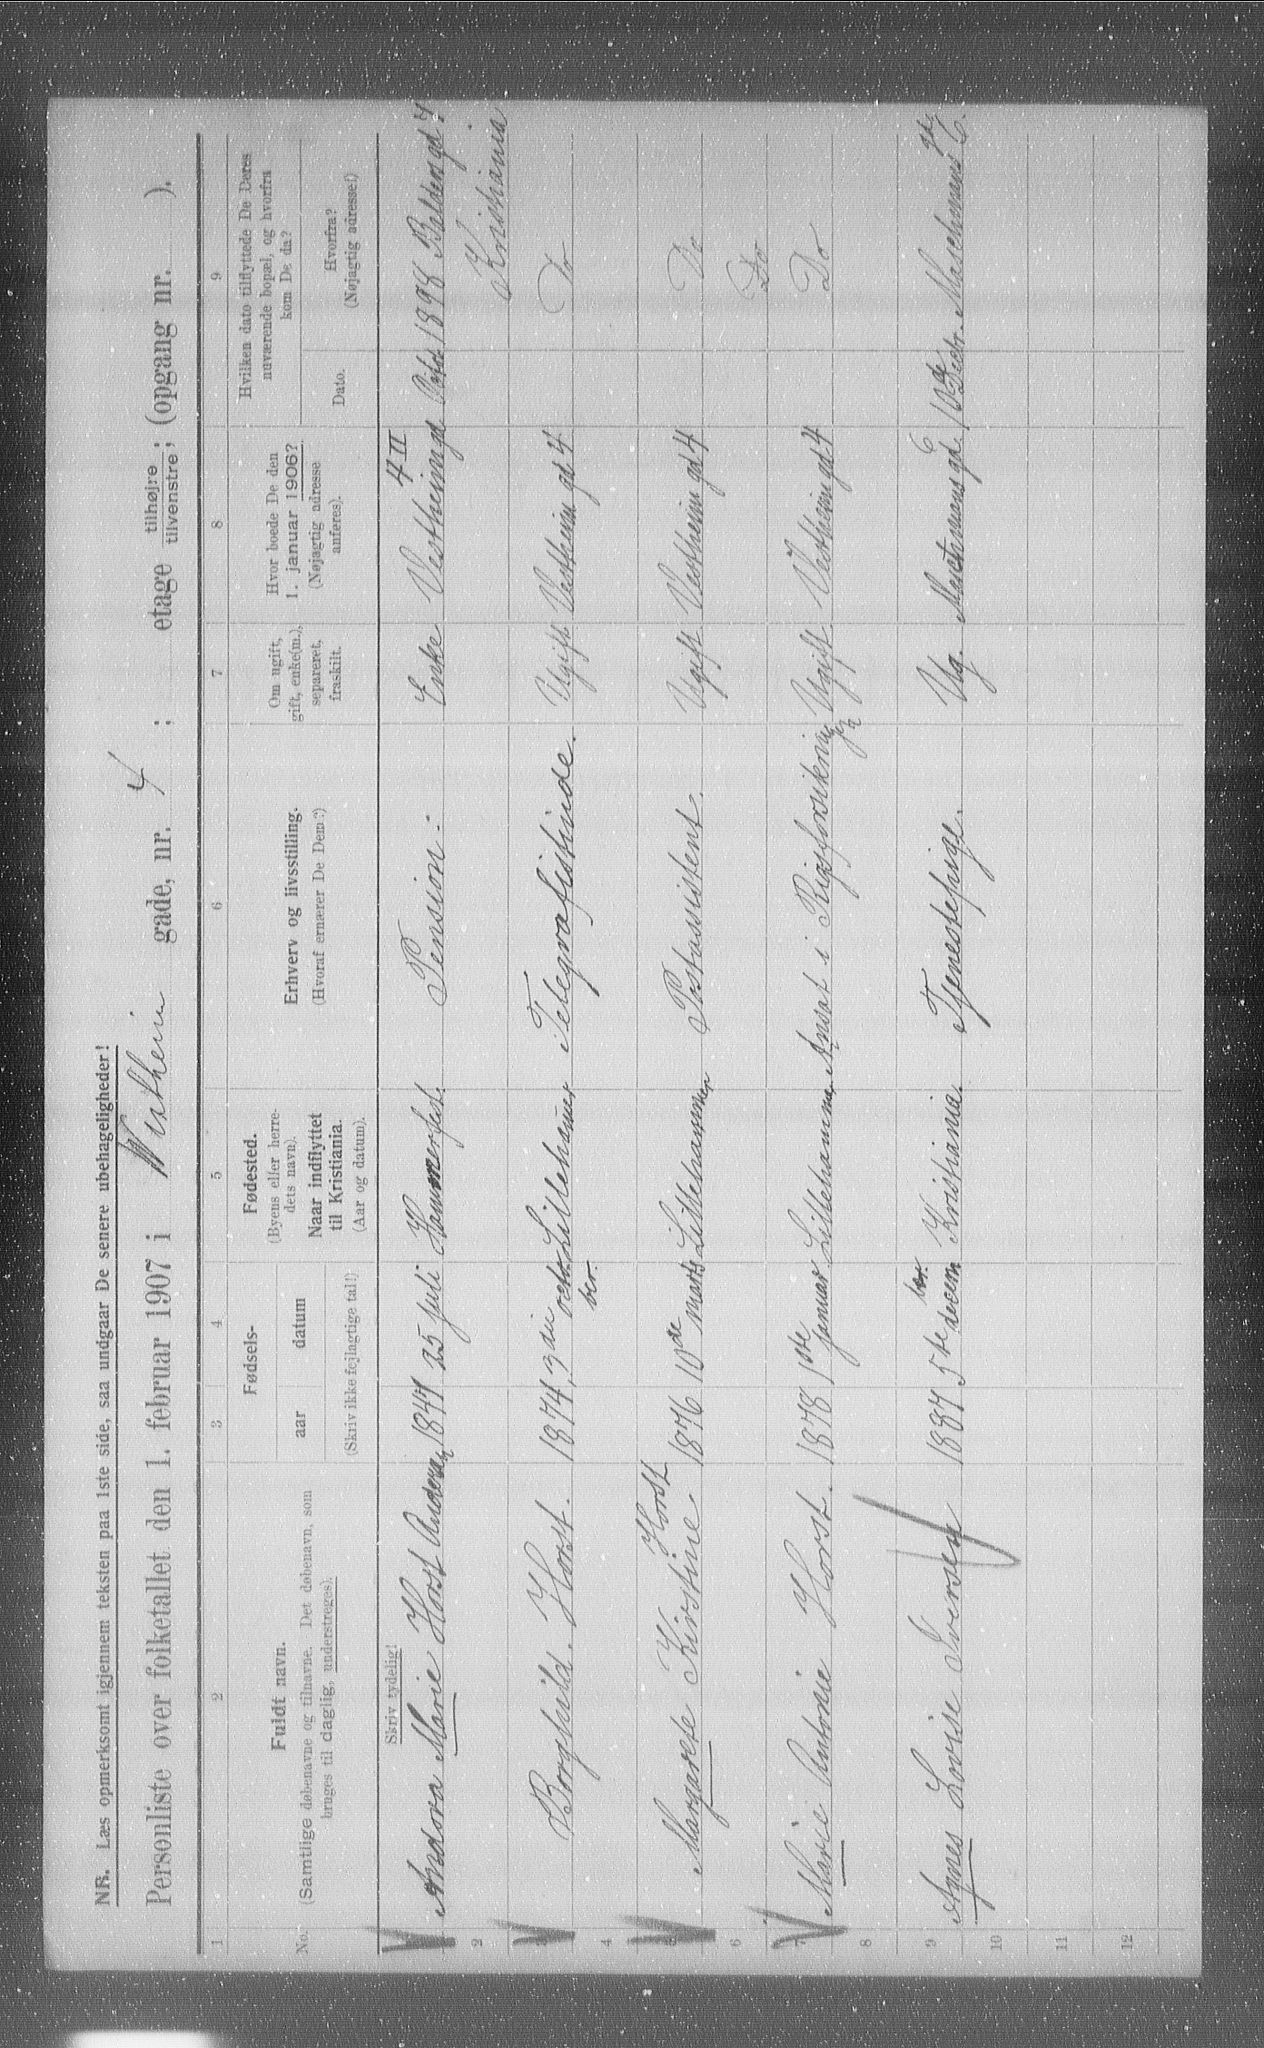 NB. Læs opmerksomt igjennem teksten paa 1ste side, saa undgaar De senere ubehageligheder!
Personliste over folketallet den 1. februar 1907 i Vestheim gade, nr. 4 ; etage tilhøjre tilvenstre; (opgang nr. ).
1 2 3 4 5 6 7 8 9
No.
Fuldt navn.
(Samtlige døbenavne og tilnavne. Det døbenavn, som
bruges til daglig, understreges).
Fødsels-
aar datum
(Skriv ikke fejlagtige tal!)
Fødested.
(Byens eller herre-
dets navn).
Naar indflyttet
til Kristiania.
(Aar og datum).
Erhverv og livsstilling.
(Hvoraf ernærer De Dem?)
Om ugift,
gift, enke(m.),
separeret,
fraskilt.
Hvor boede De den
1. januar 1906?
(Nøjagtig adresse
anføres).
Hvilken dato tilflyttede De Deres
nuværende bopæl, og hvorfra
kom De da?
Dato.
Hvorfra?
(Nøjagtig adresse!)
Skriv tydelig!
Andora Marie Horst 1847 25 juli Hammerfest. Pension.- Enke Vestheimgd 4 II 1898 Baldersgd 7
Kristiania
2
3 Borghild. Horst. 1874, 3die octobber. Lillehamer Telegrafistinde. Ugift Vestheimgd 4 Do
4
5 Margarete Kirstine Horst 1876 10de marts Lillehammer Postassistent. Ugift Vestheimgd 4 Do
6 Do
7 Marie Antonie Horst. 1878 1ste januar Lillehammer Ansat i Rigsforsikringen Ugift Vestheimgd 4 Do
8
9 Agnes Lovise Iversen 1887 5te december Kristiania. Tjenestepige. Ug. Maschmansgd. 6 10de Decbr. Maschmansgd 6.
10
11
12